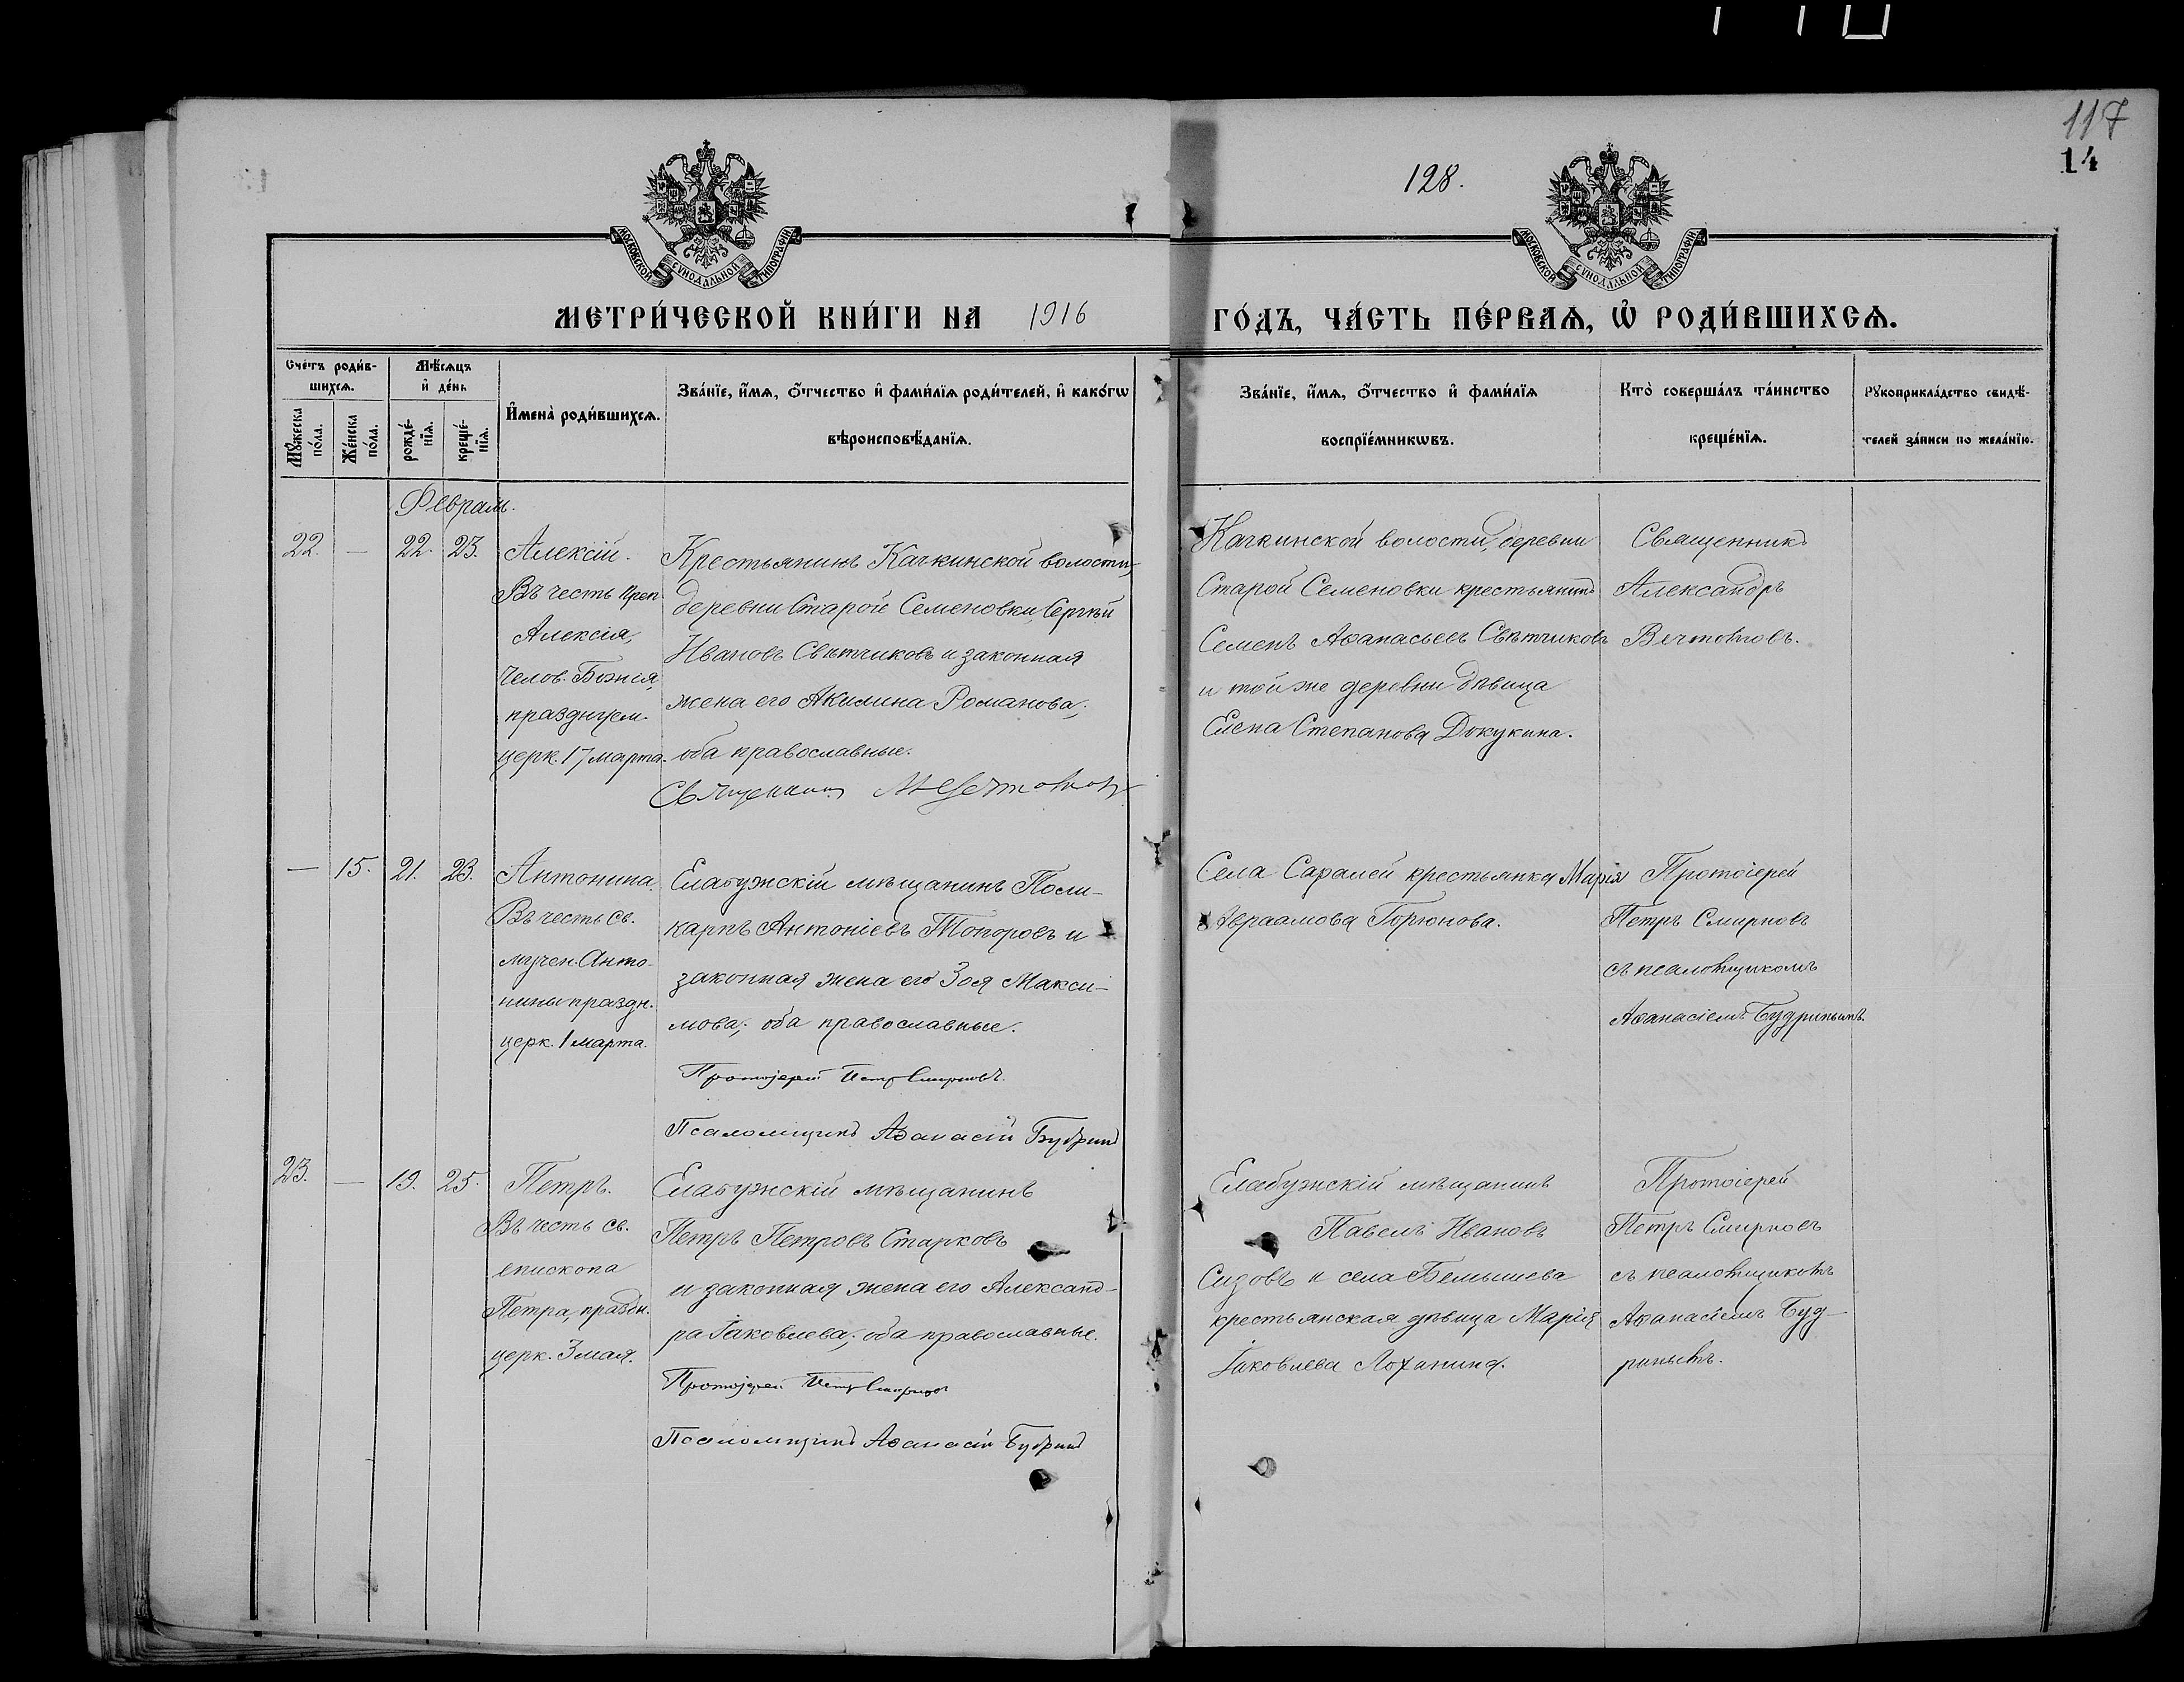 117
14
128.
МОСКОВСКОЙ СѴНОДАЛЬНОЙ ТИПОГРАФІИ
МОСКОВСКОЙ СѴНОДАЛЬНОЙ ТИПОГРАФІИ
МЕТРИ́ЧЕСКОЙ КНИ́ГИ НА 1916 ГО́ДЪ, ЧА́СТЬ ПЕ́РВАѦ, Ѡ҆ РОДИ́ВШИХСѦ.
Сче́тъ роди́в-
шихсѧ.
Мꙋ́жеска по́ла.
Же́нска по́ла.
Мѣ́сѧцъ
и҆ де́нь
рожде́-нїѧ.
креще́-нїѧ.
И҆мена̀ роди́вшихсѧ.
Зва́нїе, и҆́мѧ, ѻ҆́тчество и҆ фами́лїѧ роди́телей, и҆ како́гѡ
вѣроисповѣ́данїѧ.
Зва́нїе, и҆́мѧ, ѻ҆́тчество и҆ фами́лїѧ
воспрїе́мникѡвъ.
Кто̀ соверша́лъ та́инство
креще́нїѧ.
Рꙋкоприкла́дство свидѣ́-
телей за́писи по жела́нїю.
Февраль.
22. — 22. 23.
Алексій.
Въ честь преп.
Алексія,
Челов. Божія,
празднуем.
церк. 17 марта.
Крестьянинъ Качкинской волости,
деревни Старой Семеновки, Сергѣй
Ивановъ Свѣтчиковъ и законная
жена его Акилина Романова;
оба православные.
Священникъ
Качкинской волости, деревни
Старой Семеновки крестьянинъ
Семенъ Аѳанасьевъ Свѣтчиковъ
и той же деревни дѣвица
Елена Степанова Докукина.
Священникъ
Александръ
Вечтомовъ.
— 15. 21. 23.
Антонина.
Въ честь св.
мучен. Анто-
нины праздн.
церк. 1 марта.
Елабужскій мѣщанинъ Поли-
карпъ Антоніевъ Топоровъ и
законная жена его Зоя Макси-
мова; оба православные.
Протоіерей Петръ Смирновъ.
Псаломщикъ Аѳанасій Будринъ
Села Саралей крестьянка Марія
Авраамова Горюнова.
Протоіерей
Петръ Смирновъ
съ псаломщикомъ
Аѳанасіемъ Будринымъ.
23. — 19. 25.
Петръ.
Въ честь св.
епископа
Петра, праздн.
церк. 3 мая.
Елабужскій мѣщанинъ
Петръ Петровъ Старковъ
и законная жена его Александ-
ра Іаковлева; оба православные.
Протоіерей Петръ Смирновъ
Псаломщикъ Аѳанасій Будринъ
Елабужскій мѣщанинъ
Павелъ Ивановъ
Сизовъ и села Бемышева
крестьянская дѣвица Марія
Іаковлева Лоханина.
Протоіерей
Петръ Смирновъ
съ псаломщикомъ
Аѳанасіемъ Буд-
ринымъ.